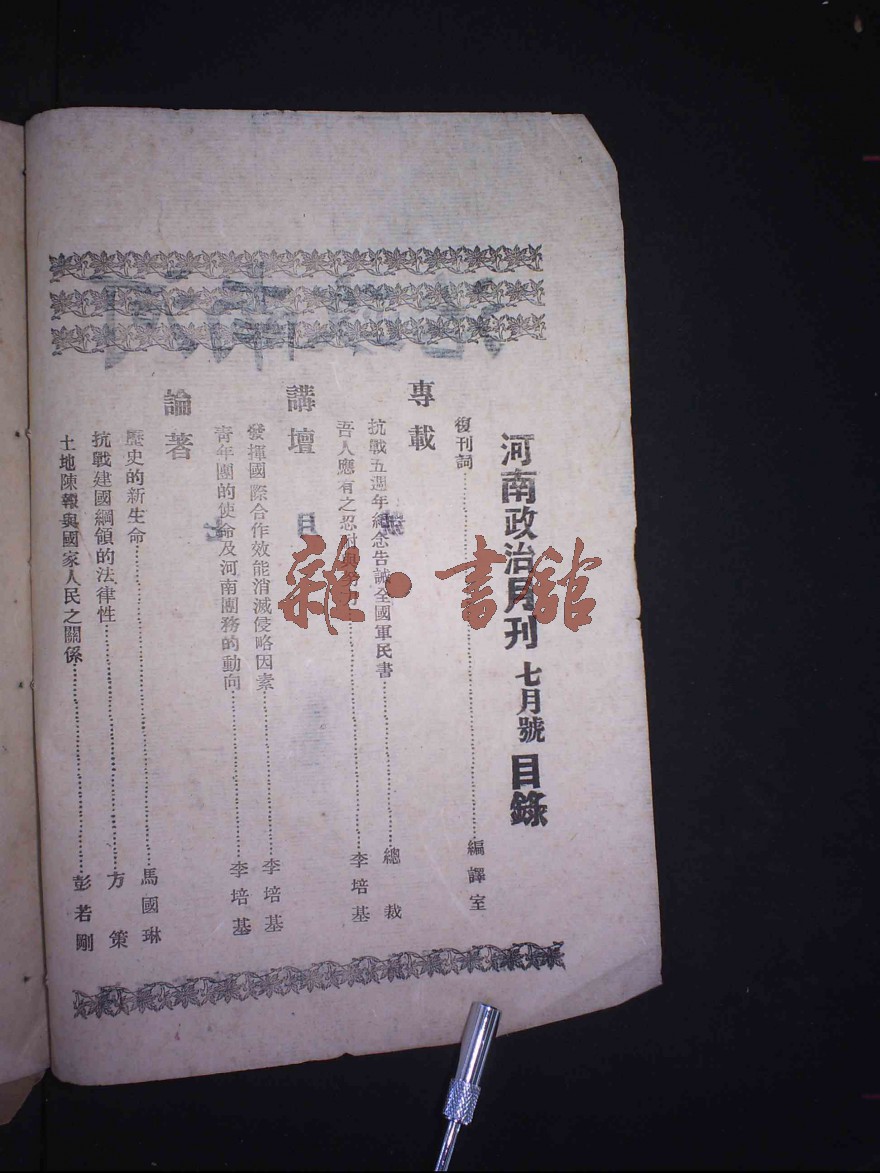 河南政治月刊 七月號 目錄
復刊詞 編譯室
專載
抗戰五週年紀念告誡全國軍民書 總裁
吾人應有之忍耐 李培基
講壇
發揮國際合作效能消滅侵略因素 李培基
青年團的使命及河南團務的動向 李培基
論著
歷史的新生命 馬國琳
抗戰建國綱領的法律性 方策
土地陳報與國家人民之關係 彭若剛
雜·書館